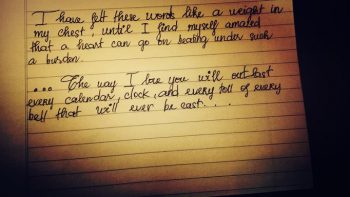 I have felt these words like a weight in
my chest, until I find myself amazed
that a heart can go on beating under such
a burden.
... The way I love you will out last
every calendar, clock, and every toll of every
bell that will ever be cast...